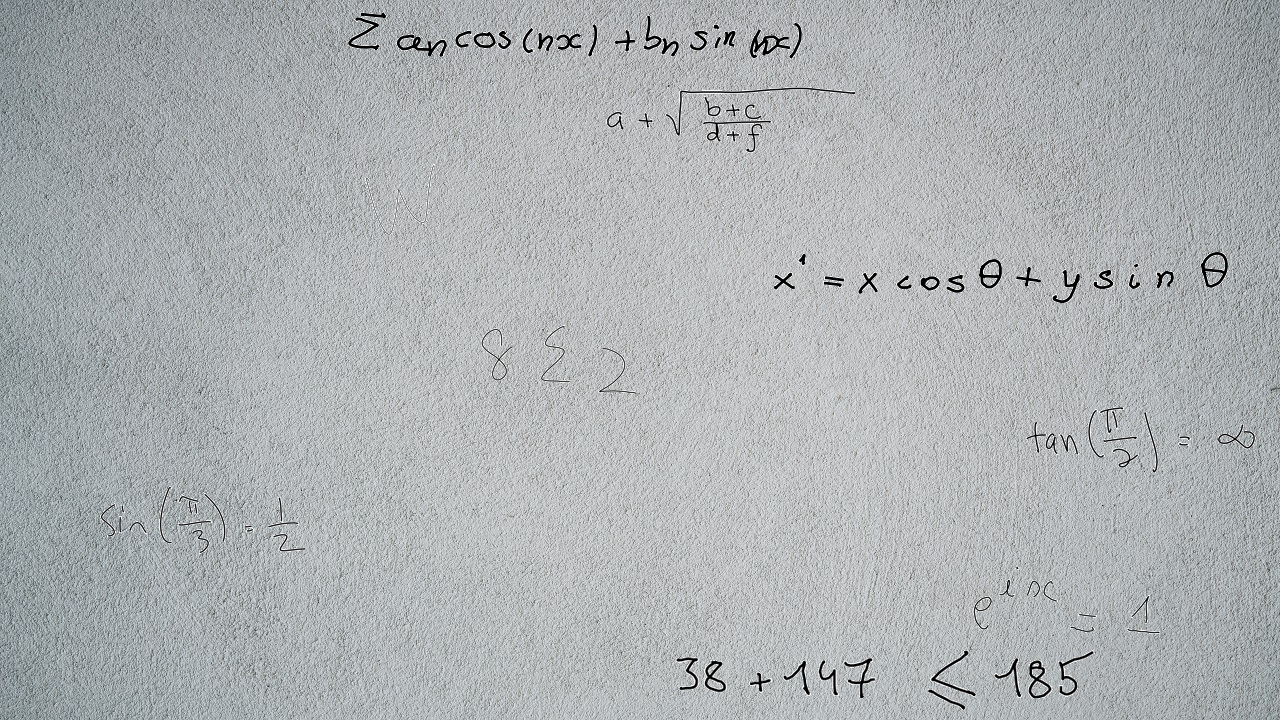 Σ an cos (nx) + bn sin (nx)
a + √((b+c)/(d+f))
W
x' = x cos θ + y sin θ
8 Σ 2
tan(π/2) = ∞
sin(π/3) = 1/2
e^(ix) = 1
38 + 147 ≤ 185